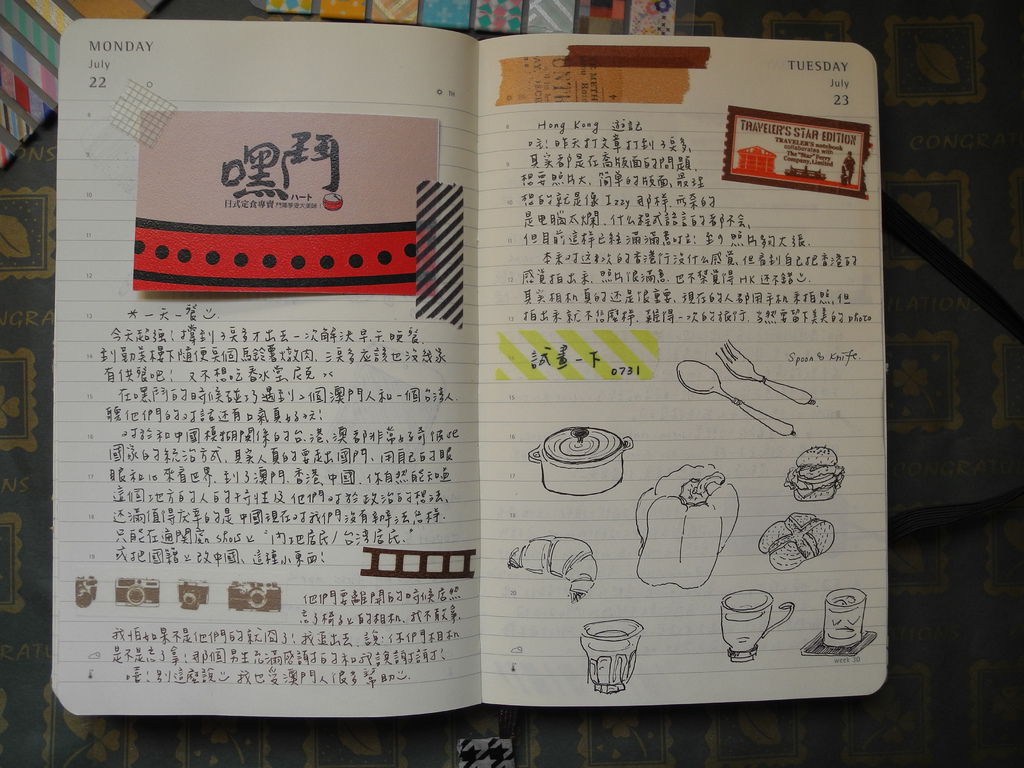 MONDAY
July
22
嘿鬥
ハート
日式定食專賣
*一天一餐
今天超強!撐到3點多才出去一次解決早午晚餐
有供餐吧!又不想吃香水堂尼克
在嘿鬥的時候碰巧遇到2個澳門人和一個台灣人
聽他們的對話還有口氣真好玩!
對於和中國模糊關係的台、港、澳都非常好奇彼此
國家的統治方式,其實人真的要走出國門,用自己的眼
眼和心來看世界,到了澳門、香港、中國,你自然能知道
這個地方的人的特性及他們對於政治的想法,
還滿值得慶幸的是中國現在對我們沒有辦法怎樣
只能在過關處show上"內地居民/台灣居民"
或把國籍上改中國,這種小東西!
他們要離開的時候居然
忘了椅子上的相機,我不敢拿,
我怕如果不是他們的就囧了!我追出去,說:你們相機
是不是忘了拿!那個男生充滿感謝的和我說謝謝!
噢!別這麼說 我也受澳門人很多幫助
TUESDAY
July
23
TRAVELER'S STAR EDITION
TRAVELER'S notebook
collaborates with
The "Star" Ferry
Company, Limited
Hong Kong 遊記
唉!昨天打文章打到3點多,
其實都是在喬版面的問題,
想要照片大、簡單的版面,最理
想的就是像Izzy那樣,西奈的
是電腦太爛,什么程式語言的都不會,
但目前這樣已經滿滿意的!至少照片夠大張.
本來對這次的香港行沒什么感覺,但看到自己把香港的
感覺拍出來,照片很滿意,也不禁覺得HK還不錯
其實相機真的還是很重要,現在的人都用手机來拍照,但
拍出來就不怎麼樣,難得一次的旅行,當然要留下美美的photo
試畫一下 0731
Spoon & Knife.
week 30